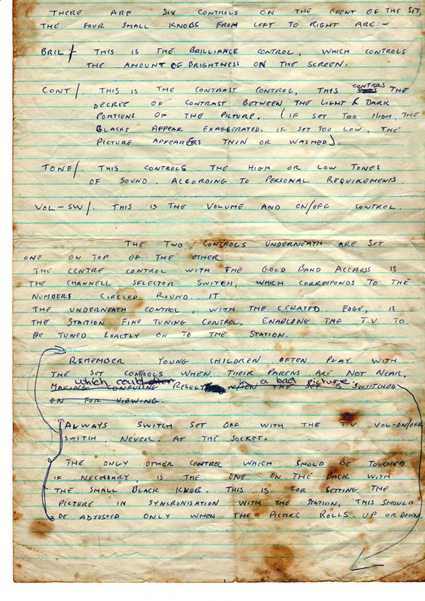 THERE ARE SIX CONTROLS ON THE FRONT OF THE SET,
THE FOUR SMALL KNOBS FROM LEFT TO RIGHT ARE:-
BRIL/ THIS IS THE BRILLIANCE CONTROL, WHICH CONTROLS
THE AMOUNT OF BRIGHTNESS ON THE SCREEN.
CONT/ THIS IS THE CONTRAST CONTROL, THIS CONTROLS THE
DEGREE OF CONTRAST BETWEEN THE LIGHT & DARK
PORTIONS OF THE PICTURE. (IF SET TOO HIGH, THE
BLACKS APPEAR EXAGGERATED. IF SET TOO LOW, THE
PICTURE APPEARS THIN OR WASHED).
TONE/ THIS CONTROLS THE HIGH OR LOW TONES
OF SOUND. ACCORDING TO PERSONAL REQUIREMENTS
VOL-SW/. THIS IS THE VOLUME AND ON/OFF CONTROL.
THE TWO CONTROLS UNDERNEATH ARE SET
ONE ON TOP OF THE OTHER
THE CENTRE CONTROL WITH THE GOLD BAND ACCROSS IS
THE CHANNELL SELECTOR SWITCH, WHICH CORRESPONDS TO THE
NUMBERS CIRCLED ROUND IT
THE UNDERNEATH CONTROL, WITH THE CERATED EDGE, IS
THE STATION FINE TUNING CONTROL, ENABLING THE T.V TO
BE TUNED EXACTLY ON TO THE STATION.
REMEMBER YOUNG CHILDREN OFTEN PLAY WITH
THE SET CONTROLS WHEN THEIR PARENS ARE NOT NEAR,
which could in a bad picture.
MAKING CONFUSING RESULT WHEN THE SET IS SWITCHED
ON FOR VIEWING.
ALWAYS SWITCH SET OFF WITH THE T.V VOL-ON/OFF
SWITCH. NEVER. AT THE SOCKET.
THE ONLY OTHER CONTROL WHICH SHOULD BE TOUCHED
IF NECESSARY, IS THE ONE ON THE BACK WITH
THE SMALL BLACK KNOB. THIS IS FOR SETTING THE
PICTURE IN SYNCRONISATION WITH THE STATION, THIS SHOULD
BE ADJUSTED ONLY WHEN THE PICTURE ROLLS. UP OR DOWN.